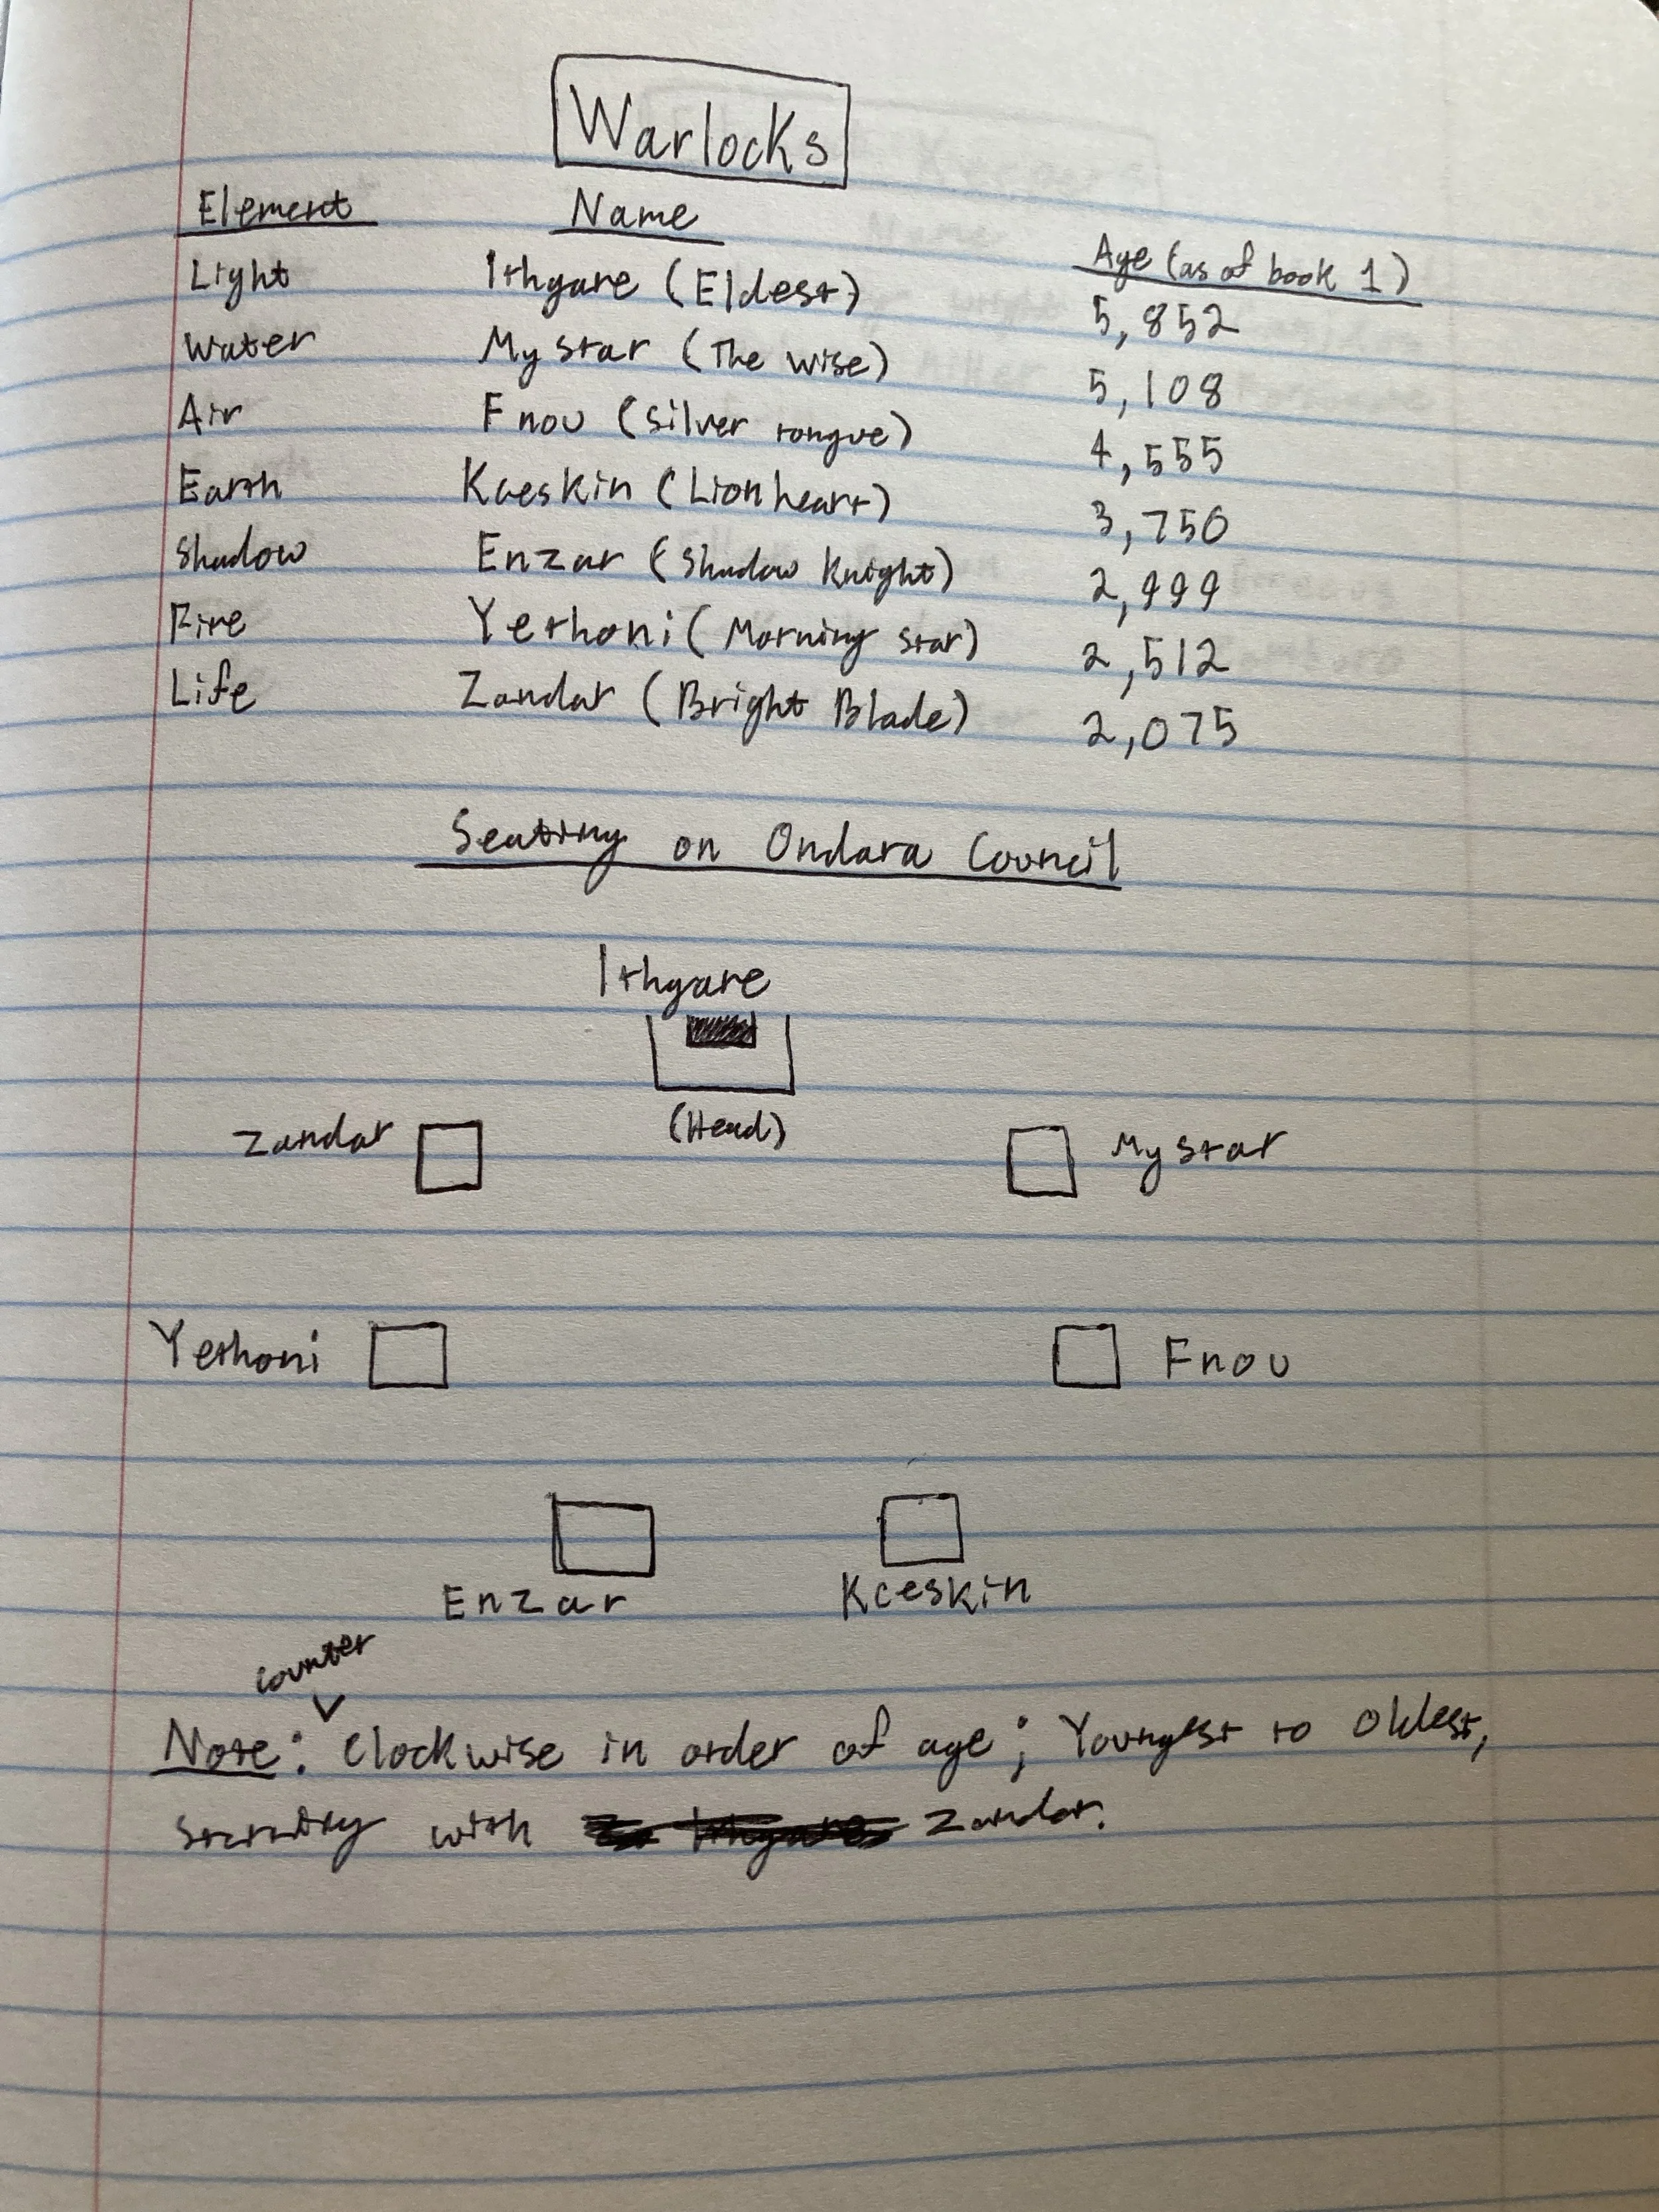 Warlocks
Element Name Age (as of book 1)
Light Ithgare (Eldest) 5,852
Water Mystar (The wise) 5,108
Air Fnou (Silver tongue) 4,555
Earth Kaeskin (Lionheart) 3,750
Shadow Enzar (Shadow Knight) 2,999
Fire Yethoni (Morning star) 2,512
Life Zandar (Bright Blade) 2,075
Seating on Ondara Council
Ithgare
(Head)
Zandar Mystar
Yethoni Fnou
Enzar Kceskin
counter
Note: Clockwise in order of age; Youngest to Oldest,
starting with Zandar.